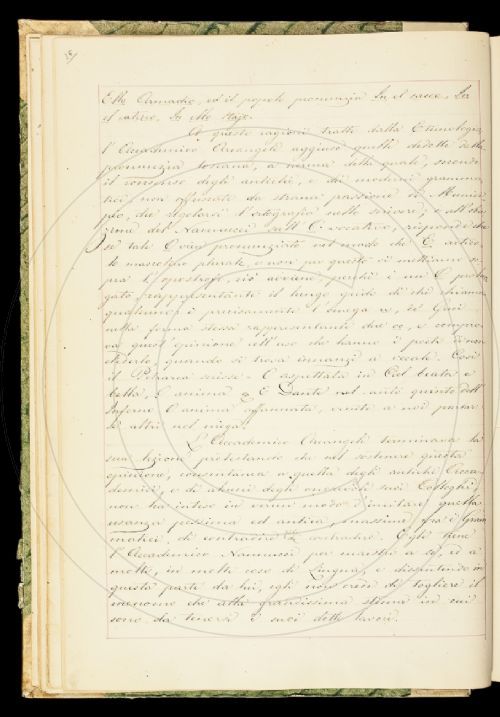 Elle Armadio, ed il popolo pronunzia In, el sacco, Per
il calesso, In illo stajo.
A queste ragioni tratte dalla Etimologia
l'Accademico Arcangeli aggiunse quelle dedotte dalla
pronunzia toscana, a norma della quale, secondo
il consenso degli antichi, e dei moderni gramma-
tici non offuscati da strana passione di Munici-
pio, dee regolarsi l'ortografia nello scrivere; e all'obie-
zione del Nannucci sull'O vocativo, risponde che
se tale O vien pronunziato nel modo che E artico-
lo mascolino plurale, e non per questo si mettiamo so-
pra l'apostrofo, ciò avviene, perchè è un O prolun-
gato rappresentante il lungo grido di chi chiama
qualcuno: è precisamente l'omega
nella forma stessa rappresentante due oo, e compro-
va quest'opinione coll'uso che hanno i poeti di non
eliderlo quando si trova innanzi a vocale. Così
il Petrarca scrisse - O aspettata in Ciel beata e
bella, O anima E Dante nel canto quinto dell'
Inferno O anime affannate, venite a noi parlar
s'altri nol niega.
L'Accademico Arcangeli terminava la
sua lezione protestando che nel sostener questa
opinione, consentanea a quella degli antichi Acca-
demici, e di alcuni degli onorevoli suoi Colleghi
non ha inteso in verun modo d'imitare quella
usanza pessima ed antica, massime fra i Gram-
matici, di contraddire
l'Accademico Nannucci per maestro a sè, ed a
molti, in molte cose di Lingua, e dissentendo in
questa parte da lui, egli non crede di togliere il
che alla grandissima stima in cui
sono da tenersi i suoi dotti lavori.